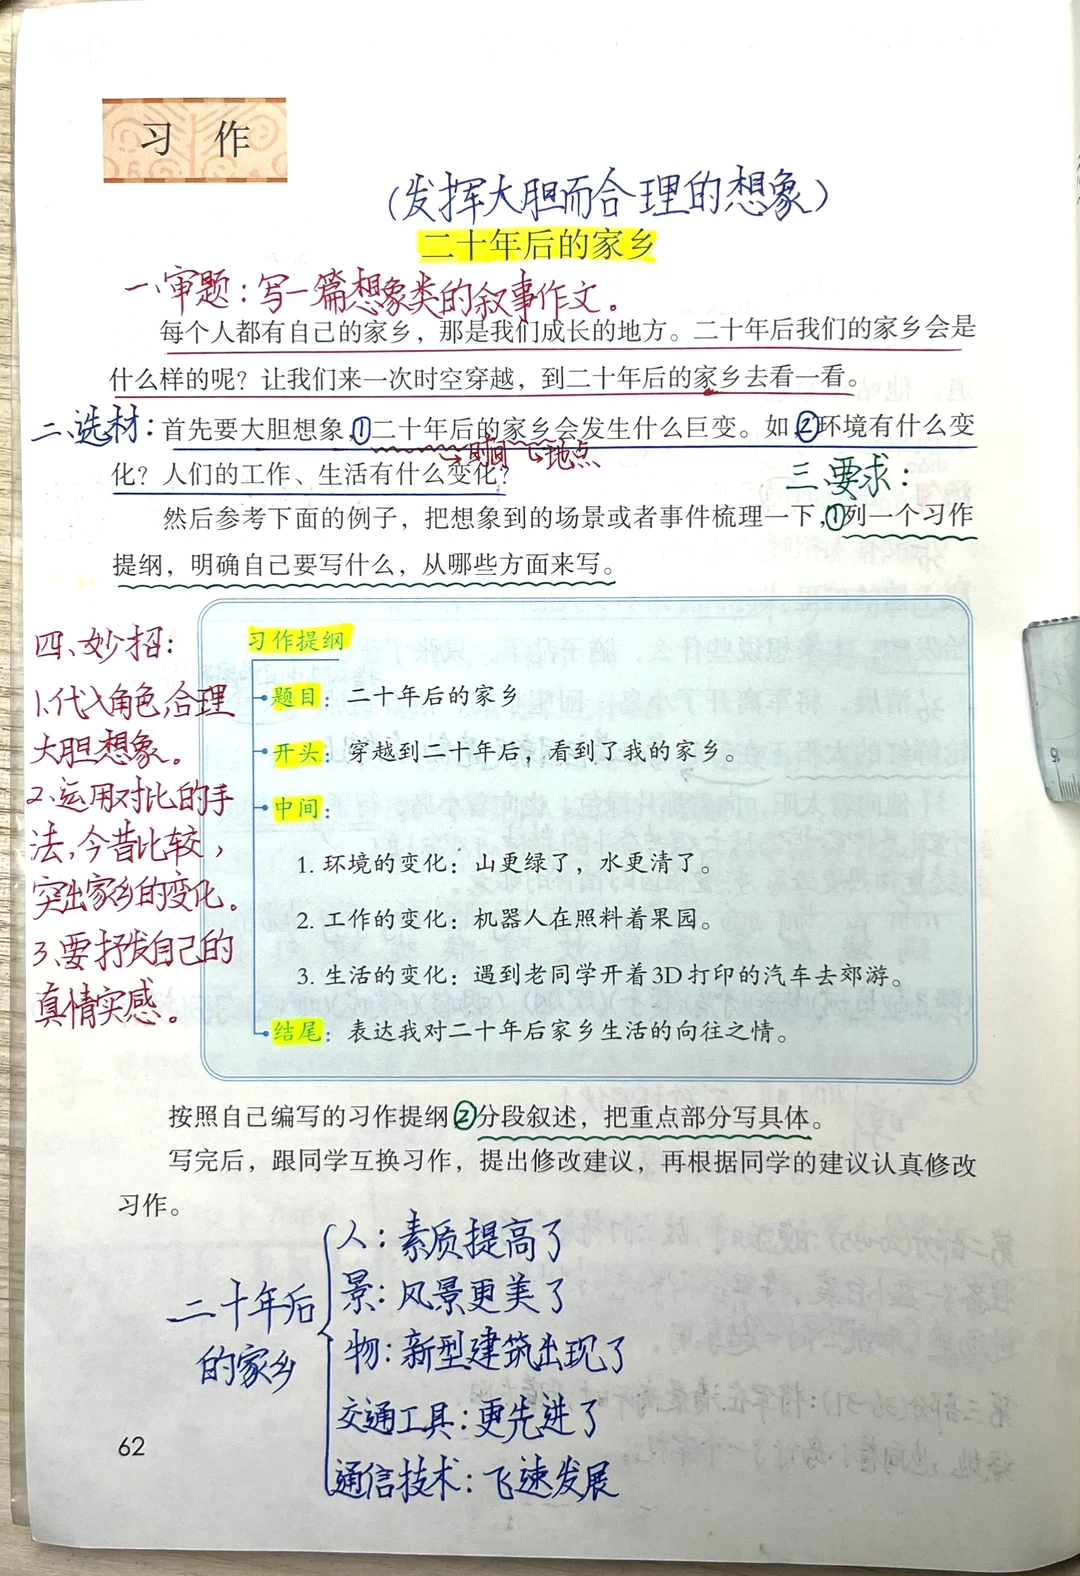 习 作
（发挥大胆而合理的想象）
二十年后的家乡
一、审题：写一篇想象类的叙事作文。
每个人都有自己的家乡，那是我们成长的地方。二十年后我们的家乡会是
什么样的呢？让我们来一次时空穿越，到二十年后的家乡去看一看。
二、选材：首先要大胆想象，①二十年后的家乡会发生什么巨变。如，②环境有什么变
→时间 →地点
化？人们的工作、生活有什么变化？
三、要求：
然后参考下面的例子，把想象到的场景或者事件梳理一下，①列一个习作
提纲，明确自己要写什么，从哪些方面来写。
四、妙招：
1.代入角色，合理
大胆想象。
2.运用对比的手
法，今昔比较，
突出家乡的变化。
3.要抒发自己的
真情实感。
习作提纲
题目：二十年后的家乡
开头：穿越到二十年后，看到了我的家乡。
中间：
1. 环境的变化：山更绿了，水更清了。
2. 工作的变化：机器人在照料着果园。
3. 生活的变化：遇到老同学开着3D打印的汽车去郊游。
结尾：表达我对二十年后家乡生活的向往之情。
按照自己编写的习作提纲②分段叙述，把重点部分写具体。
写完后，跟同学互换习作，提出修改建议，再根据同学的建议认真修改
习作。
二十年后
的家乡
人：素质提高了
景：风景更美了
物：新型建筑出现了
交通工具：更先进了
通信技术：飞速发展
62